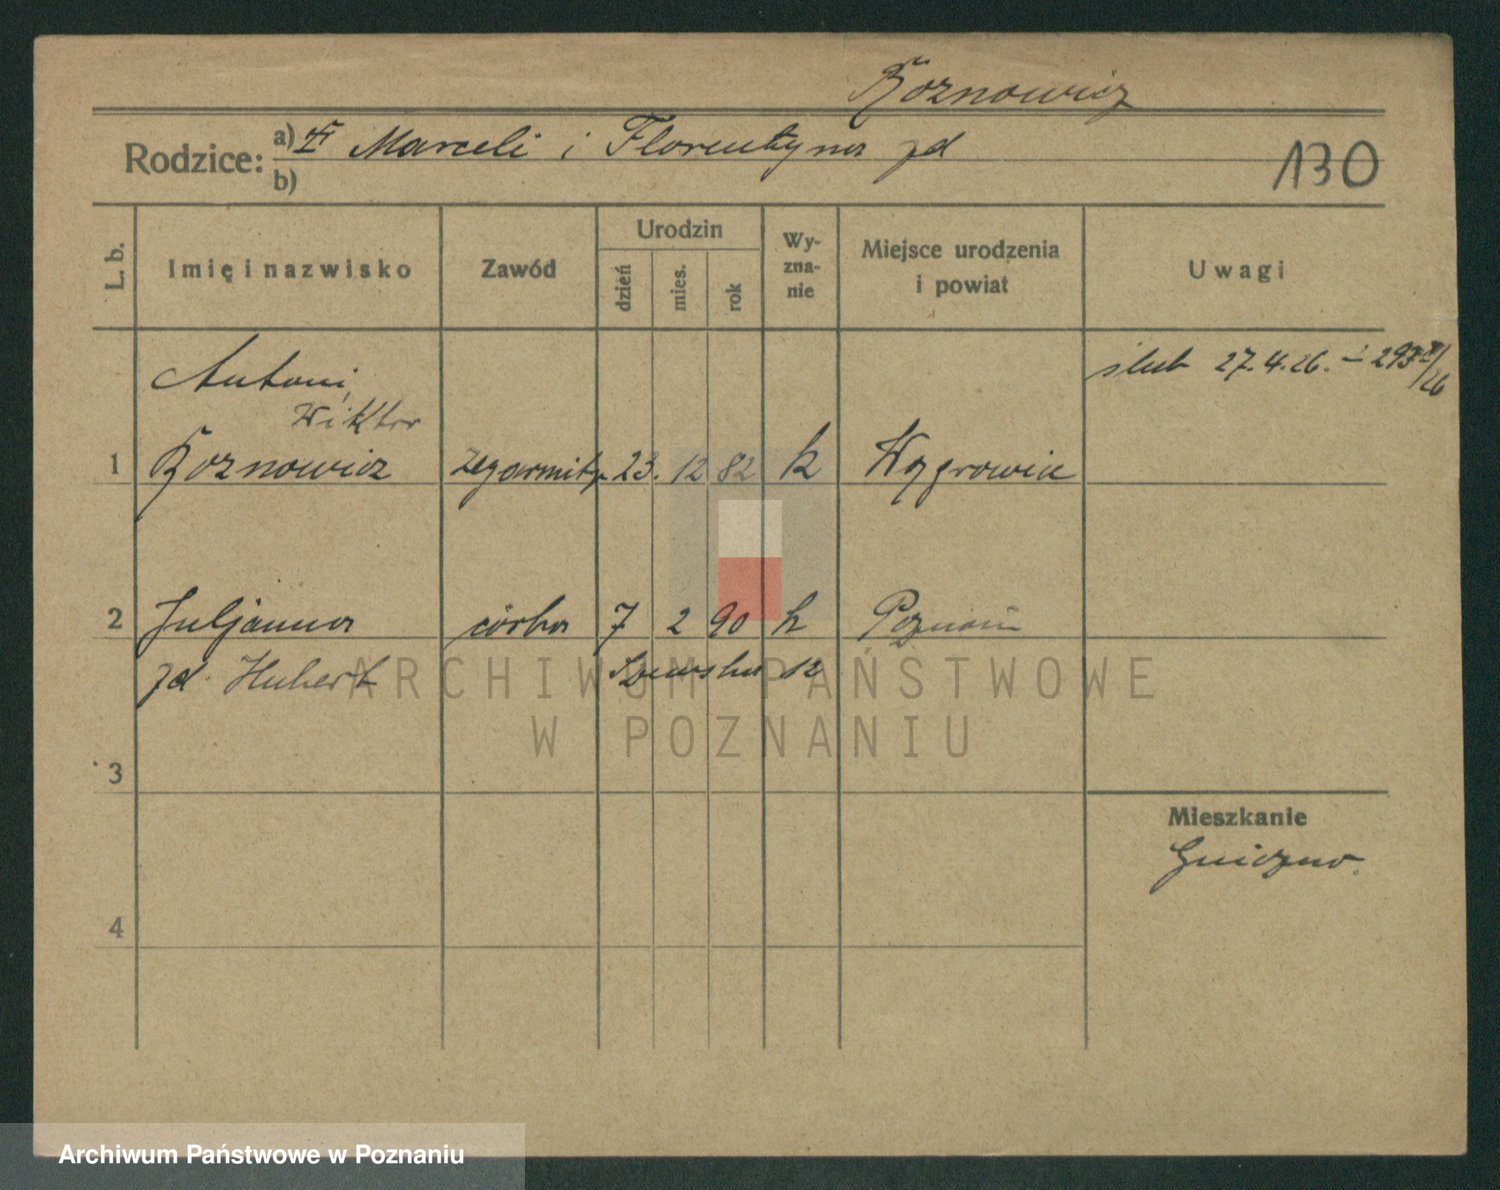 Roznowicz
Rodzice: a) Marceli i Florentyna zd
b)
130
L. b. Imię i nazwisko Zawód Urodzin dzień mies. rok Wy-zna-nie Miejsce urodzenia i powiat Uwagi
ślub 27.4.26. 26
Antoni,
Wiktor
1 Roznowicz zegarmistrz 23. 12 82 k Wągrowiec
2 Juljanna córka 7 2 90 k Poznań
zd. Hubert Szewska 12
ARCHIWUM PAŃSTWOWE
W POZNANIU
3
Mieszkanie
Gniezno.
4
Archiwum Państwowe w Poznaniu